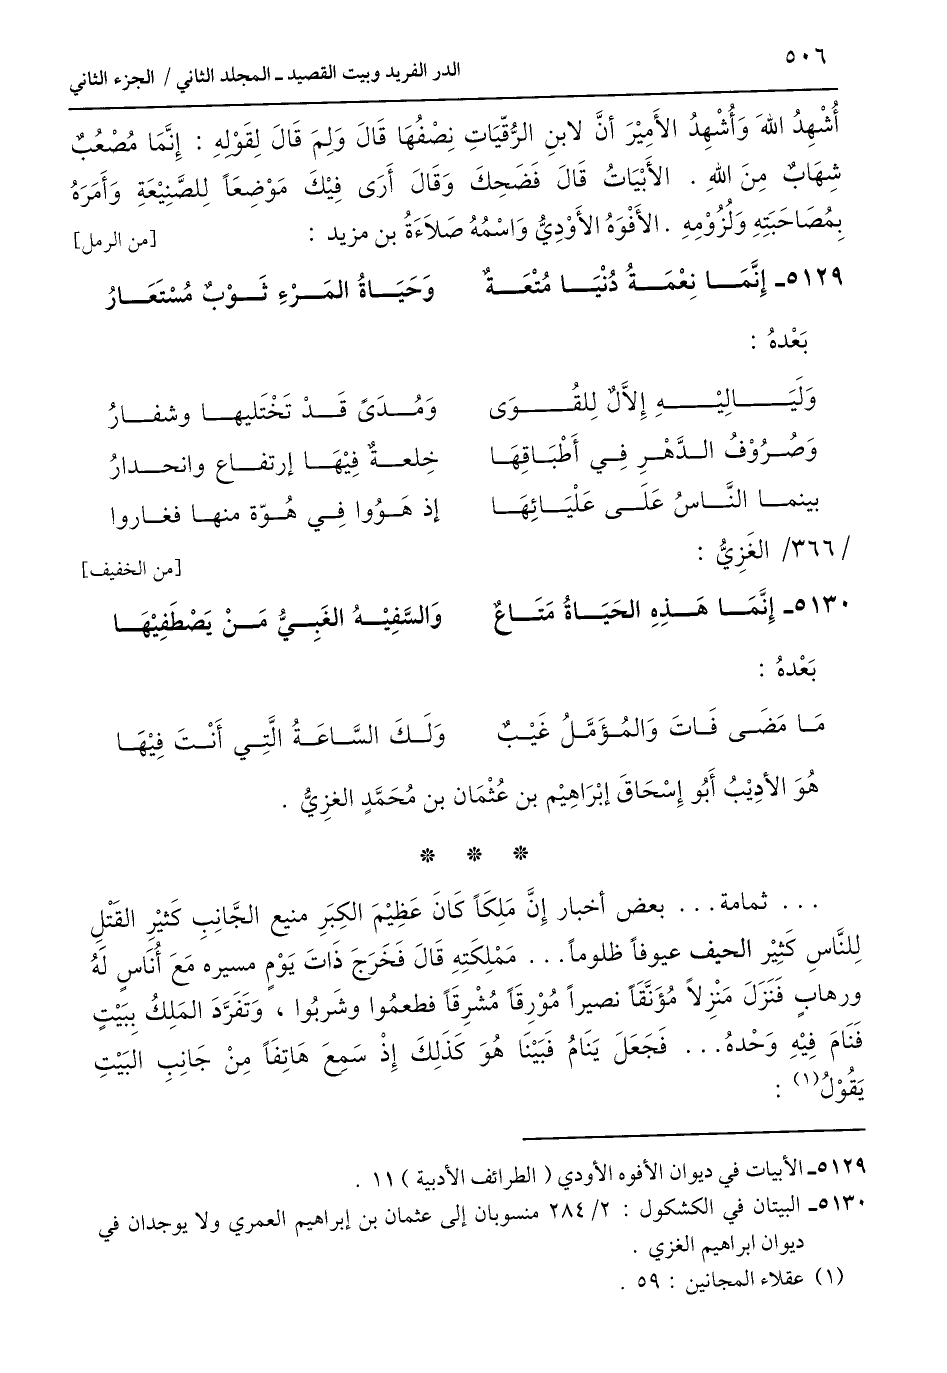 ٥٠٦
الدر الفريد وبيت القصيد ـ المجلد الثاني / الجزء الثاني
أُشْهِدُ اللهَ وَأُشْهِدُ الأَمِيْرَ أنَّ لابنِ الرُّقّيَاتِ نِصْفُهَا قَالَ وَلِمَ قَالَ لِقَوْلِهِ : إِنَّمَا مُصْعُبٌ
شِهَابٌ مِنَ اللهِ . الأَبْيَاتُ قَالَ فَضَحِكَ وَقَالَ أَرَى فِيْكَ مَوْضِعَاً لِلصَّنِيْعَةِ وَأَمَرَهُ
بِمُصَاحَبَتِهِ وَلُزُوْمِهِ . الأَفْوَهُ الأَوْدِيُّ وَاسْمُهُ صَلَاءَةُ بن مزيد : [من الرمل]
٥١٢٩ـ إِنَّمَـا نِعْمَـةُ دُنْيَـا مُتْعَـةٌ وَحَيَـاةُ المَـرْءِ ثَـوْبٌ مُسْتَعَـارُ
بَعْدهُ :
وَلَيَـالِيْـهِ إِلاَّلٌ لِلقُـوَى وَمُـدَىً قَـدْ تَخْتَليهـا وشفـارُ
وَصُـرُوْفُ الـدَّهْـرِ فِـي أَطْبَـاقِهَـا خِلعـةٌ فِيْهَـا إرتفـاع وانحـدارُ
بينمـا النَّـاسُ عَلَـى عَلْيَـائِهَـا إذ هَـوُوا فِـي هُـوّة منهـا فغـاروا
/٣٦٦/ الغَزِيُّ : [من الخفيف]
٥١٣٠ـ إِنَّمَـا هَـذِهِ الحَيَـاةُ مَتَـاعٌ وَالسَّفِيْـهُ الغَبِـيُّ مَـنْ يَصْطَفِيْهَـا
بَعْدهُ :
مَـا مَضَـى فَـاتَ وَالمُـؤَمَّـلُ غَيْـبٌ وَلَـكَ السَّـاعَـةُ الَّتِـي أَنْـتَ فِيْهَـا
هُوَ الأَدِيْبُ أَبُو إِسْحَاقَ إِبْرَاهِيْم بن عُثْمَان بن مُحَمَّدٍ الغزِيُّ .
* * *
... ثمامة... بعض أخبار إِنَّ مَلِكَاً كَانَ عَظِيْمَ الكِبَرِ منيع الجَّانِبِ كَثيْرِ القَتْلِ
لِلنَّاسِ كَثِيْر الحيف عيوفاً ظلوماً... مَمْلِكَتِهِ قَالَ فَخَرَجَ ذَاتَ يَوْمٍ مسيره مَعَ أُنَاسٍ لَهُ
ورهابٍ فَنَزَلَ مَنْزِلاً مُؤَنَّقَاً نصيراً مُوْرِقَاً مُشْرِقَاً فطعمُوا وشَربُوا ، وَتَفَرَّدَ المَلِكُ بِبَيْتٍ
فَنَامَ فِيْهِ وَحْدهُ... فَجَعَلَ يَنَامُ فَبَيْنَا هُوَ كَذَلِكَ إِذْ سَمِعَ هَاتِفَاً مِنْ جَانِبِ البَيْتِ
يَقُوْلُ(١) :
٥١٢٩ـ الأبيات في ديوان الأفوه الأودي ( الطرائف الأدبية ) ١١ .
٥١٣٠ـ البيتان في الكشكول : ٢/ ٢٨٤ منسوبان إلى عثمان بن إبراهيم العمري ولا يوجدان في
ديوان ابراهيم الغزي .
(١) عقلاء المجانين : ٥٩ .